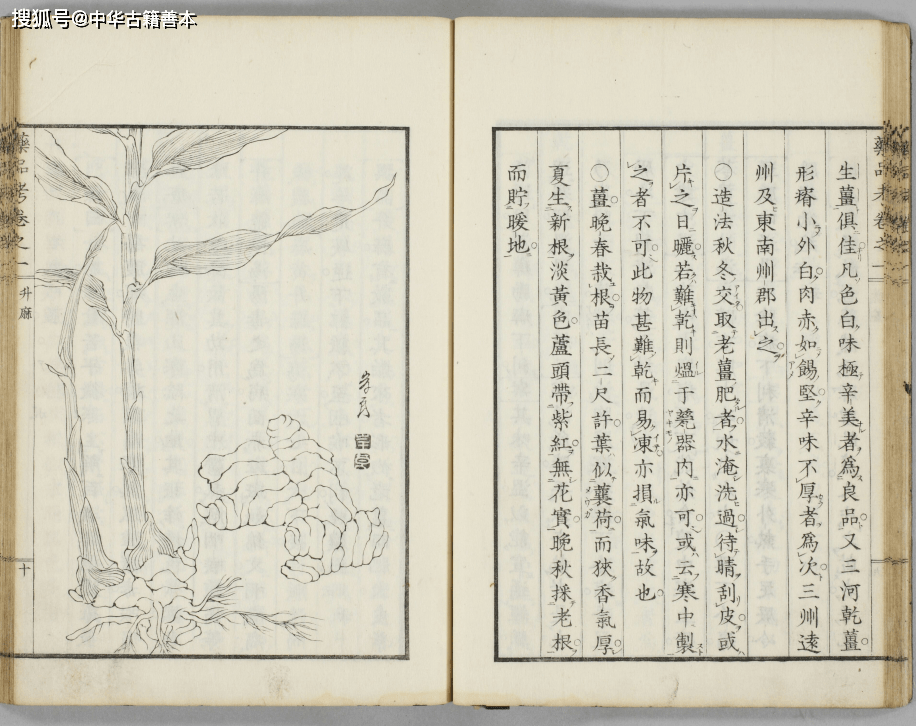 搜狐号@中华古籍善本
生薑俱佳凡色白味極辛美者爲良品又三河乾薑
形瘠小外白肉赤如餳堅辛味不厚者爲次三州遠
州及東南州郡出之
〇造法秋冬交取老薑肥者水淹洗過待晴刮皮或
片之日曬若難乾則熅于甕器内亦可或云寒中製
之者不可此物甚難乾而易凍亦損氣味故也
〇薑晩春栽根苗長二尺許葉似蘘荷而狹香氣厚
夏生新根淡黃色蘆頭帶紫紅無花實晩秋採老根
而貯暖地
藥品考卷之一
藥品考卷之一
升麻
十